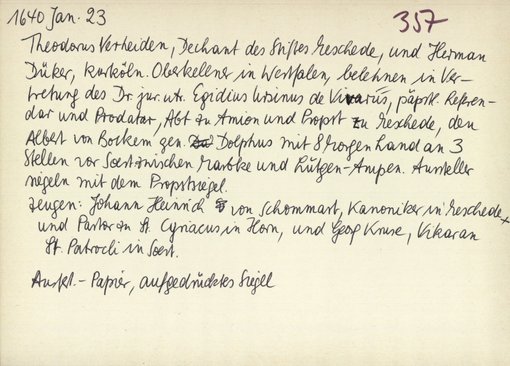 1640 Jan. 23
357
Theodorus Verheiden, Dechant des Stiftes Meschede, und Herman
Düker, kurköln. Oberkellner in Westfalen, belehnen in Ver-
tretung des Dr. jur. utr. Egidius Ursinus de Vivariis, päpstl. Referen-
dar und Prodatar, Abt zu Amion und Propst zu Meschede, den
Albert von Bockem gen. Dolphus mit 8 Morgen Land an 3
Stellen vor Soest zwischen Marbke und Lütgen-Ampen. Aussteller
siegeln mit dem Propstsiegel.
Zeugen: Johann Heinrich von Schommart, Kanoniker in Meschede
und Pastor zu St. Cyriacus in Horn, und Georg Kruse, Vikar an
St. Patrocli in Soest.
Ausf. - Papier, aufgedrücktes Siegel